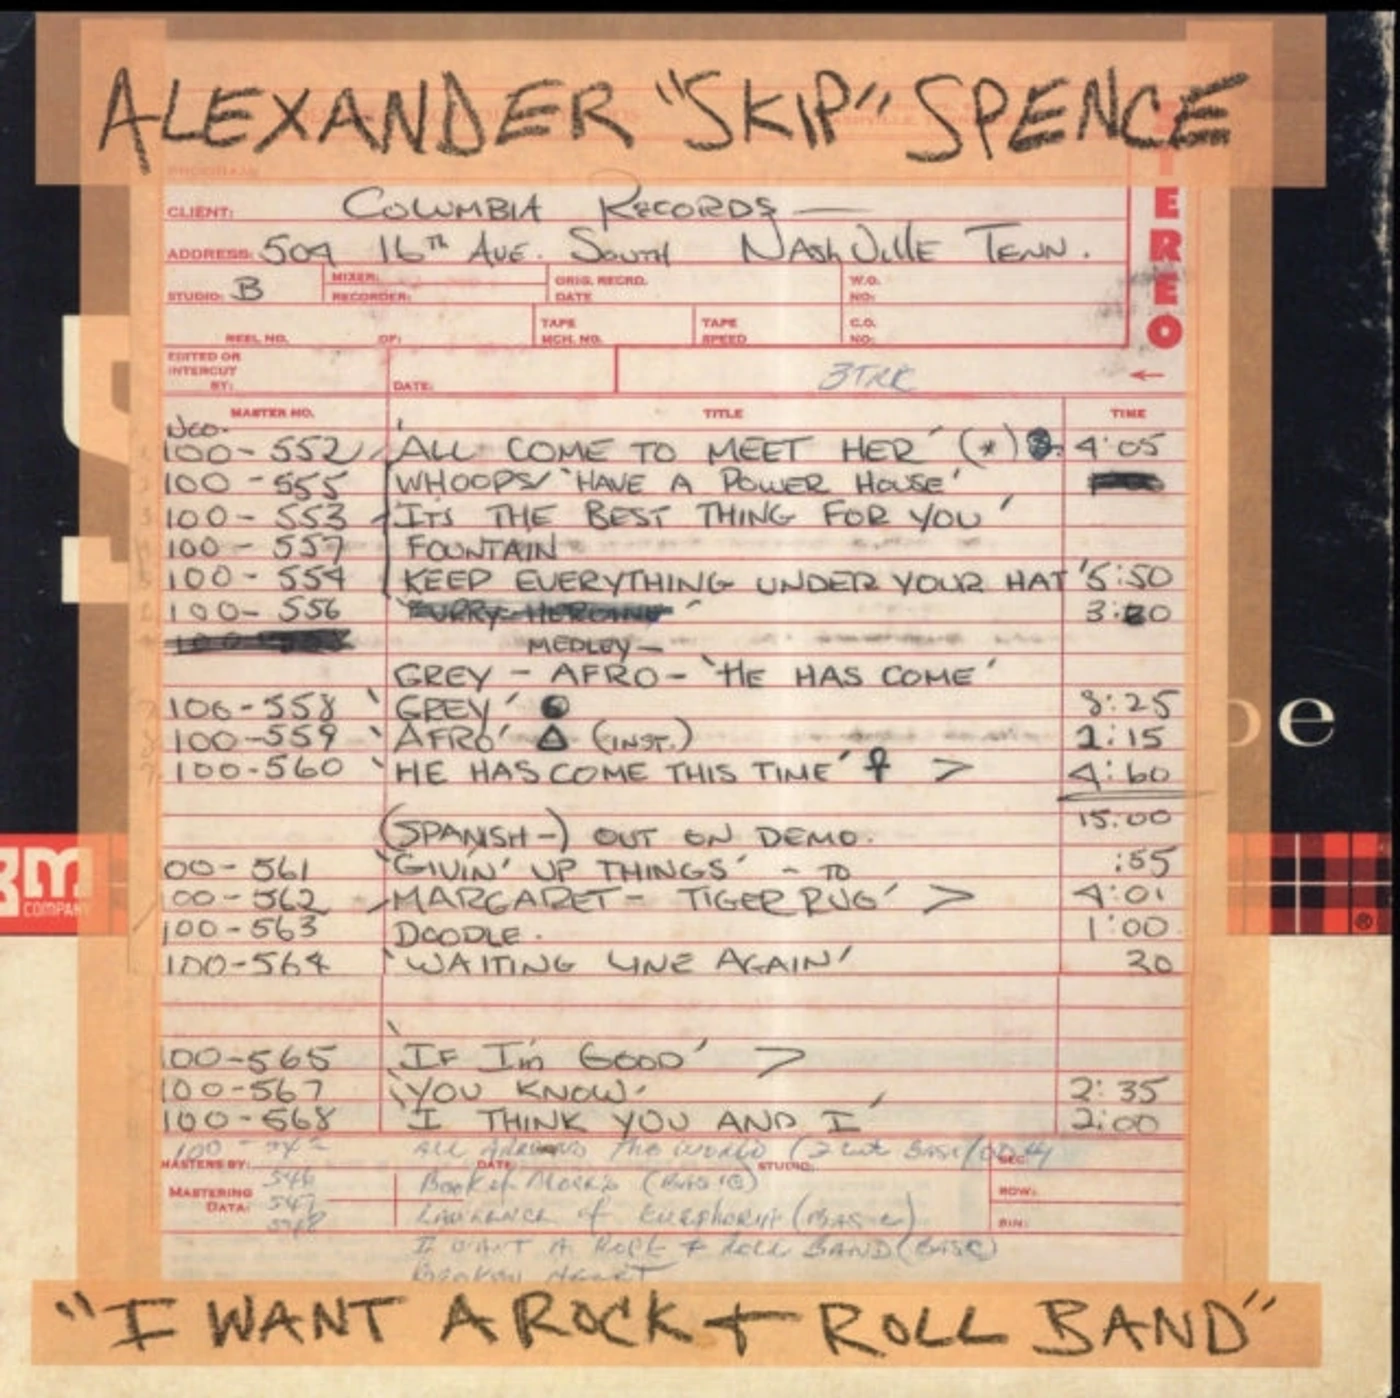 ALEXANDER "SKIP" SPENCE
STEREO
CLIENT: COLUMBIA RECORDS —
ADDRESS: 504 16TH AVE. SOUTH NASHVILLE TENN.
STUDIO: B MIXER: RECORDER: ORIG. RECRD. DATE W.O. NO:
REEL NO. OF: TAPE MCH. NO. TAPE SPEED C.O. NO:
EDITED OR INTERCUT BY: DATE: 3TRK ←
MASTER NO. TITLE TIME
NCO.
100-552 'ALL COME TO MEET HER' (*) 4:05
100-555 WHOOPS/ 'HAVE A POWER HOUSE'
100-553 ITS THE BEST THING FOR YOU'
100-557 FOUNTAIN
100-554 KEEP EVERYTHING UNDER YOUR HAT' 5:50
100-556 'FURRY HEROINE' 3:20
MEDLEY —
GREY - AFRO - 'HE HAS COME'
100-558 'GREY' 8:25
100-559 'AFRO' △ (INST.) 2:15
100-560 'HE HAS COME THIS TIME' ♀ > 4:60
15:00
(SPANISH-) OUT ON DEMO.
00-561 'GIVIN' UP THINGS' - TO :55
100-562 MARGARET - TIGER RUG' > 4:01
100-563 DOODLE. 1:00
100-564 'WAITING LINE AGAIN' 20
100-565 'IF I'm GOOD' >
100-567 'YOU KNOW' 2:35
100-568 'I THINK YOU AND I' 2:00
100 - ALL AROUND THE WORLD
MASTERS BY: DATE: STUDIO: SEC:
MASTERING DATA: 546 Booker Morris (BASIC) ROW:
547 LAWRENCE of EUROPHORIA (BASIC) BIN:
I WANT A ROCK & ROLL BAND (BASIC)
Broken Heart
"I WANT A ROCK + ROLL BAND"
3M
COMPANY
pe
®